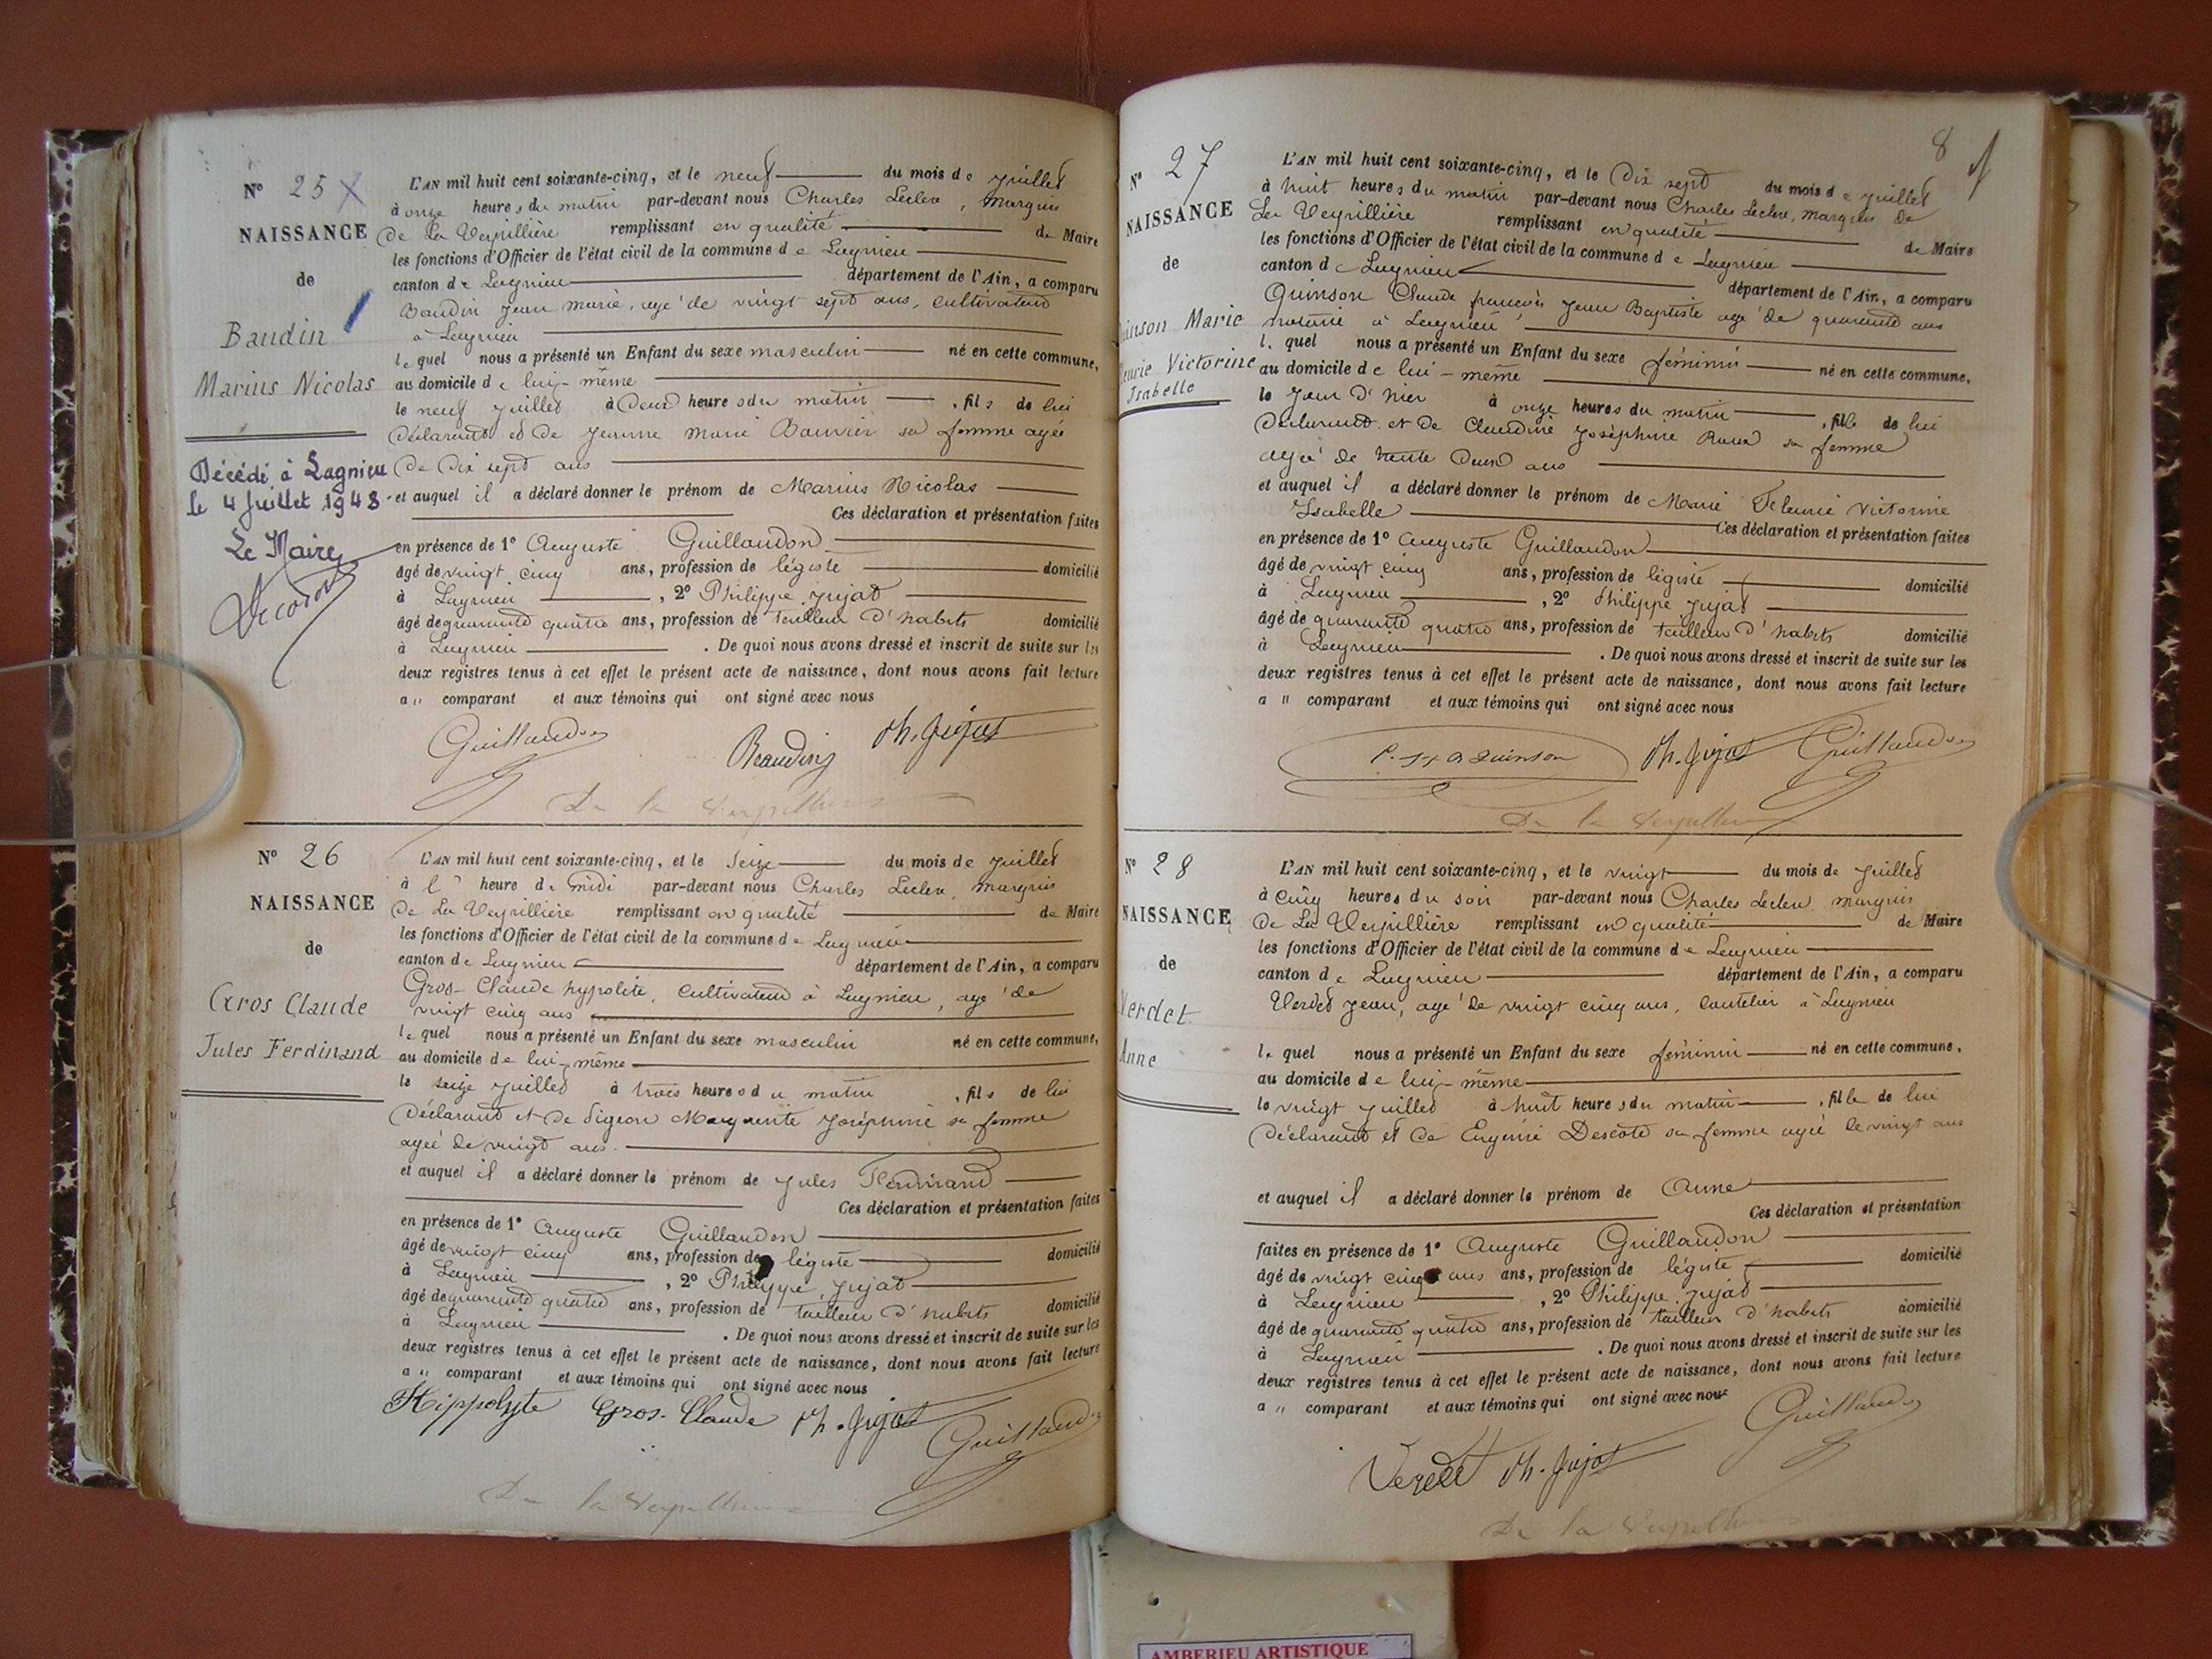 N° 25 X
NAISSANCE
de
Baudin
Marius Nicolas
Décédé à Lagnieu
le 4 Juillet 1948
Le Maire
L'AN mil huit cent soixante-cinq, et le neuf du mois de juillet
à onze heures du matin par-devant nous Charles Leclerc, marquis
De La Verpillière remplissant en qualité de Maire
les fonctions d'Officier de l'état civil de la commune de Lagnieu
canton de Lagnieu département de l'Ain, a comparu
Baudin Jean marie, agé de vingt sept ans, cultivateur
à Lagnieu
lequel nous a présenté un Enfant du sexe masculin né en cette commune,
au domicile de lui-même
le neuf juillet à Deux heures du matin, fils de lui
Déclarant et de Jeanne Marie Bouvier sa femme agée
De Dix sept ans
et auquel il a déclaré donner le prénom de Marius Nicolas
Ces déclaration et présentation faites
en présence de 1° Auguste Guillaudon
âgé de vingt cinq ans, profession de légiste domicilié
à Lagnieu, 2° Philippe Jujat
âgé de quarante quatre ans, profession de tailleur d'habits domicilié
à Lagnieu. De quoi nous avons dressé et inscrit de suite sur les
deux registres tenus à cet effet le présent acte de naissance, dont nous avons fait lecture
a" comparant et aux témoins qui ont signé avec nous
Guillaudon Beaudin Ph. Jujat
De la Verpillière
N° 26
NAISSANCE
de
Gros Claude
Jules Ferdinand
L'AN mil huit cent soixante-cinq, et le Seize du mois de juillet
à l" heure de midi par-devant nous Charles Leclerc, marquis
De La Verpillière remplissant en qualité de Maire
les fonctions d'Officier de l'état civil de la commune de Lagnieu
canton de Lagnieu département de l'Ain, a comparu
Gros-Claude hypolite, cultivateur à Lagnieu, agé de
vingt cinq ans
lequel nous a présenté un Enfant du sexe masculin né en cette commune,
au domicile de lui-même
le seize juillet à trois heures du matin, fils de lui
Déclarant et de Pigeon Marguerite Joséphine sa femme
agée de vingt ans.
et auquel il a déclaré donner le prénom de Jules Ferdinand
Ces déclaration et présentation faites
en présence de 1° Auguste Guillaudon
âgé de vingt cinq ans, profession de légiste domicilié
à Lagnieu, 2° Philippe Jujat
âgé de quarante quatre ans, profession de tailleur d'habits domicilié
à Lagnieu. De quoi nous avons dressé et inscrit de suite sur les
deux registres tenus à cet effet le présent acte de naissance, dont nous avons fait lecture
a" comparant et aux témoins qui ont signé avec nous
Hippolyte Gros-Claude Ph. Jujat Guillaudon
De la Verpillière
8
N° 27
NAISSANCE
de
Marie
Victorine
Isabelle
L'AN mil huit cent soixante-cinq, et le Dix sept du mois de juillet
à huit heures du matin par-devant nous Charles Leclerc, marquis de
La Verpillière remplissant en qualité de Maire
les fonctions d'Officier de l'état civil de la commune de Lagnieu
canton de Lagnieu département de l'Ain, a comparu
Quinson Claude françois Jean Baptiste agé de quarante ans
notaire à Lagnieu
lequel nous a présenté un Enfant du sexe féminin né en cette commune,
au domicile de lui-même
le Jour d'hier à onze heures du matin, fille de lui
Déclarant et de Claudine Joséphine Roux sa femme
agée de trente Deux ans
et auquel il a déclaré donner le prénom de Marie Fleurie Victorine
Isabelle Ces déclaration et présentation faites
en présence de 1° Auguste Guillaudon
âgé de vingt cinq ans, profession de légiste domicilié
à Lagnieu, 2° Philippe Jujat
âgé de quarante quatre ans, profession de tailleur d'habits domicilié
à Lagnieu. De quoi nous avons dressé et inscrit de suite sur les
deux registres tenus à cet effet le présent acte de naissance, dont nous avons fait lecture
a" comparant et aux témoins qui ont signé avec nous
Quinson Ph. Jujat Guillaudon
De la Verpillière
N° 28
NAISSANCE
de
Verdet
Anne
L'AN mil huit cent soixante-cinq, et le vingt du mois de juillet
à cinq heures du soir par-devant nous Charles Leclerc marquis
De La Verpillière remplissant en qualité de Maire
les fonctions d'Officier de l'état civil de la commune de Lagnieu
canton de Lagnieu département de l'Ain, a comparu
Verdet Jean, agé de vingt cinq ans, coutelier à Lagnieu
lequel nous a présenté un Enfant du sexe féminin né en cette commune,
au domicile de lui-même
le vingt juillet à huit heures du matin, fille de lui
Déclarant et de Eugénie Descôte sa femme agée de vingt ans
et auquel il a déclaré donner le prénom de Anne
Ces déclaration et présentation
faites en présence de 1° Auguste Guillaudon
âgé de vingt cinq ans ans, profession de légiste domicilié
à Lagnieu, 2° Philippe Jujat
âgé de quarante quatre ans, profession de tailleur d'habits domicilié
à Lagnieu. De quoi nous avons dressé et inscrit de suite sur les
deux registres tenus à cet effet le présent acte de naissance, dont nous avons fait lecture
a" comparant et aux témoins qui ont signé avec nous
Verdet Ph. Jujat Guillaudon
De la Verpillière
AMBERIEU ARTISTIQUE